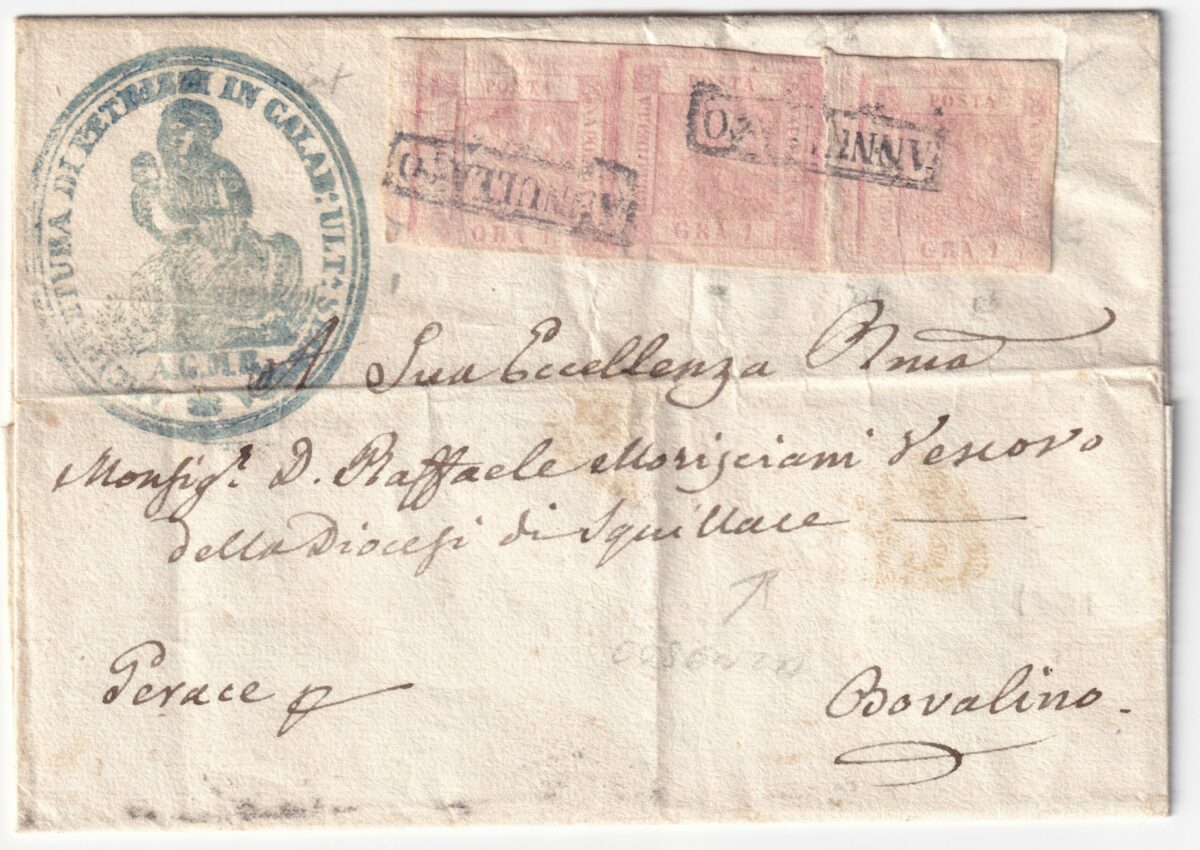 TURA DI PETRIZZI IN CALABᴬ ULTᴬ S
A.G.M.R.
POSTA
GRA 1
POSTA
GRA 1
POSTA
GRA 1
ANNULLATO
ANNULLATO
A Sua Eccellenza Rma
Monsigr. D. Raffaele Morisciani Vescovo
della Diocesi di Squillace
Gerace p
Bovalino.